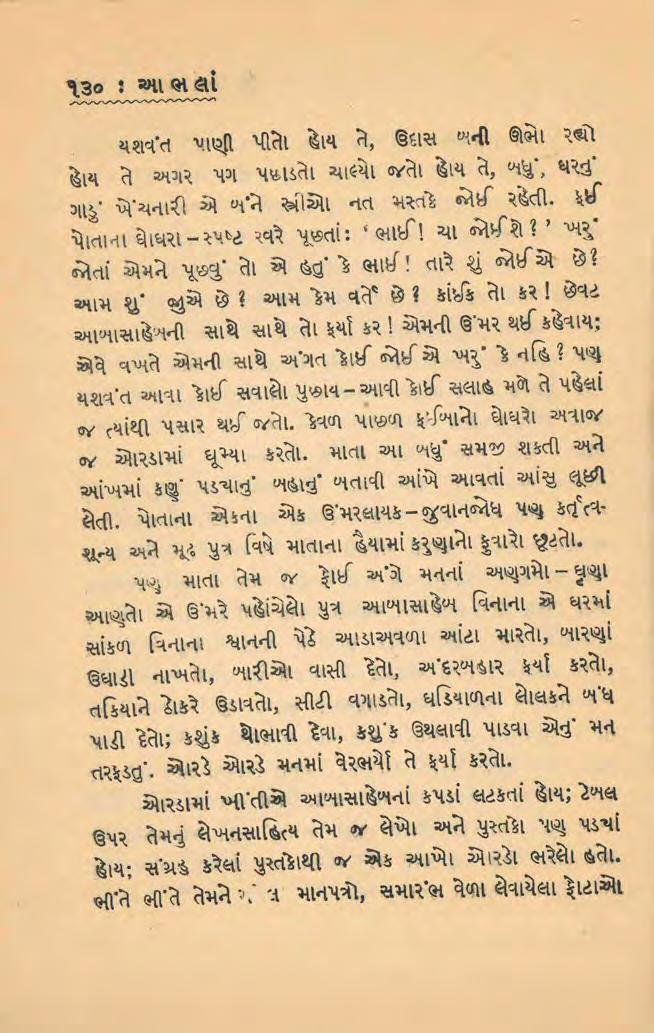 ૧૩૦ : આભલાં
યશવંત પાણી પીતો હોય તે, ઉદાસ બની ઊભો રહ્યો
હોય તે અગર પગ પછાડતો ચાલ્યો જતો હોય તે, બધું, ઘરનું
ગાડું ખેંચનારી એ બંને સ્ત્રીઓ નત મસ્તકે જોઈ રહેતી. ફઈ
પોતાના ઘોઘરા – સ્પષ્ટ સ્વરે પૂછતાં: ‘ ભાઈ! ચા જોઈશે ? ’ ખરું
જોતાં એમને પૂછવું તો એ હતું કે ભાઈ! તારે શું જોઈએ છે?
આમ શું જુએ છે ? આમ કેમ વર્તે છે ? કાંઈક તો કર ! છેવટ
આબાસાહેબની સાથે સાથે તો ફર્યા કર ! એમની ઉંમર થઈ કહેવાય;
એવે વખતે એમની સાથે અંગત કોઈ જોઈએ ખરું કે નહિ ? પણ
યશવંત આવા કોઈ સવાલો પુછાય – આવી કોઈ સલાહ મળે તે પહેલાં
જ ત્યાંથી પસાર થઈ જતો. કેવળ પાછળ ફઈબાનો ઘોઘરો અવાજ
જ ઓરડામાં ઘૂમ્યા કરતો. માતા આ બધું સમજી શકતી અને
આંખમાં કણું પડયાનું બહાનું બતાવી આંખે આવતાં આંસુ લૂછી
લેતી. પોતાના એકના એક ઉંમરલાયક – જુવાનજોધ પણ કર્તૃત્વ-
શૂન્ય અને મૂઢ પુત્ર વિષે માતાના હૈયામાં કરુણાનો ફુવારો છૂટતો.
પણ માતા તેમ જ ફોઈ અંગે મનનાં અણગમો – ઘૃણા
આણતો એ ઉંમરે પહોંચેલો પુત્ર આબાસાહેબ વિનાના એ ઘરમાં
સાંકળ વિનાના શ્વાનની પેઠે આડાઅવળા આંટા મારતો, બારણાં
ઉઘાડી નાખતો, બારીઓ વાસી દેતો, અંદરબહાર ફર્યા કરતો,
તકિયાને ઠોકરે ઉડાવતો, સીટી વગાડતો, ઘડિયાળના લોલકને બંધ
પાડી દેતો; કશુંક થોભાવી દેવા, કશુંક ઉથલાવી પાડવા એનું મન
તરફડતું. ઓરડે ઓરડે મનમાં વેરભર્યો તે ફર્યા કરતો.
ઓરડામાં ખીંતીએ આબાસાહેબનાં કપડાં લટકતાં હોય; ટેબલ
ઉપર તેમનું લેખનસાહિત્ય તેમ જ લેખો અને પુસ્તકો પણ પડયાં
હોય; સંગ્રહ કરેલાં પુસ્તકોથી જ એક આખો ઓરડો ભરેલો હતો.
ભીંતે ભીંતે તેમને માનપત્રો, સમારંભ વેળા લેવાયેલા ફોટાઓ